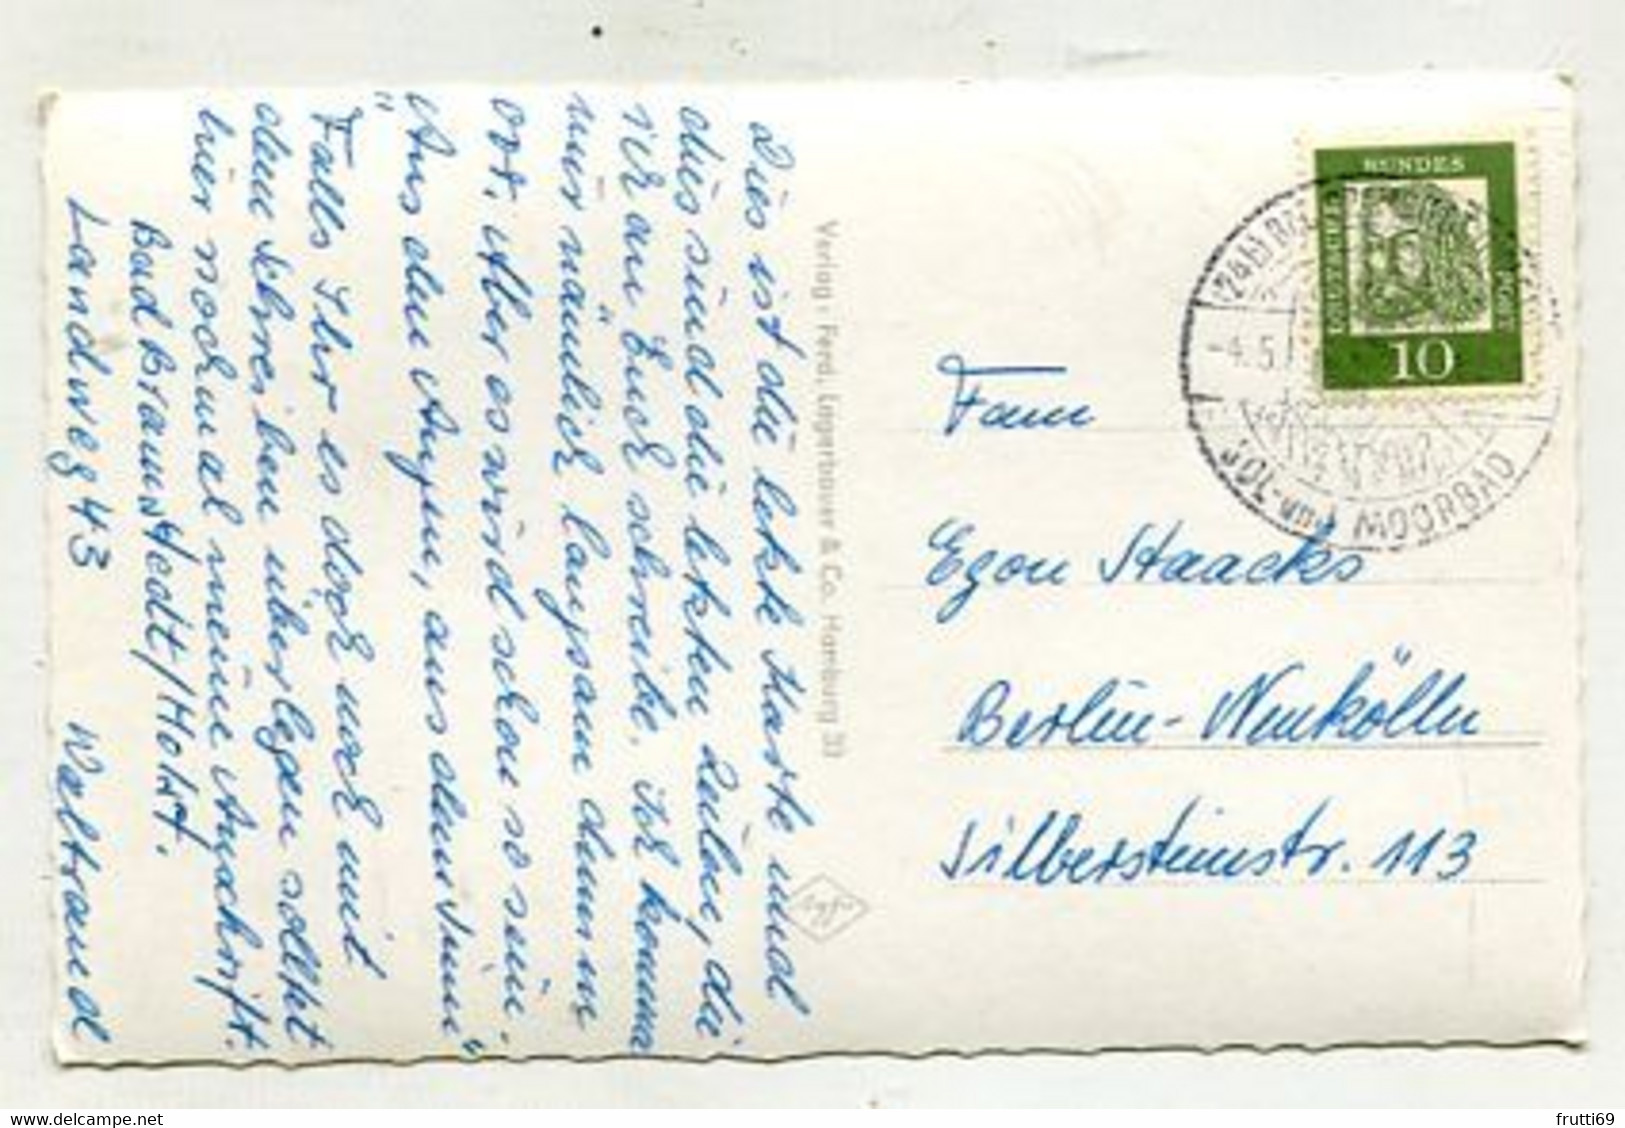 Dies ist die letzte Karte und
dies sind die letzten Zeilen, die
ich an Euch schreibe. Ich komme
mir nämlich langsam dumm
vor. Aber es wird schon so sein.
"Aus den Augen, aus dem Sinn"
Falls Ihr es doch noch mit
dem Schreiben überlegen solltet
hier nochmal meine Anschrift.
Bad Bramstedt/Holst.
Landweg 43 Waltraud
Verlag: Ferd. Lagerbauer & Co. Hamburg 33
Fam
Egon Staacks
Berlin-Neukölln
Silbersteinstr. 113
DEUTSCHE
BUNDES
POST
10
(24b) BA
-4.5.
SOL- und MOORBAD
frutti69